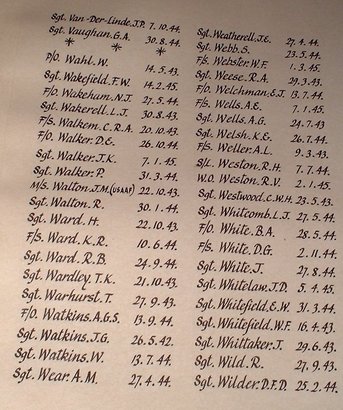 Sgt. Van-Der-Linde.J.P. 7.10.44.
Sgt. Vaughan.G.A. 30.8.44.
* * *
P/O. Wahl.W. 14.5.43.
Sgt. Wakefield.F.W. 14.2.45.
F/O. Wakeham.N.J. 27.5.44.
Sgt. Wakerell.L.J. 30.8.43.
F/S. Walkem.C.R.A. 20.10.43.
F/O. Walker.D.E. 26.10.44.
Sgt. Walker.J.K. 7.1.45.
Sgt. Walker.P. 31.3.44.
M/S. Walton.J.M.(USAAF) 22.10.43.
Sgt. Walton.R. 30.1.44.
Sgt. Ward.H. 22.10.43.
F/S. Ward.K.R. 10.6.44.
Sgt. Ward.R.B. 24.9.44.
Sgt. Wardley.T.K. 21.10.43.
Sgt. Warhurst.T. 27.9.43.
F/O. Watkins.A.G.S. 13.9.44.
Sgt. Watkins.J.G. 26.5.42.
Sgt. Watkins.W. 13.7.44.
Sgt. Wear.A.M. 27.4.44.
Sgt. Weatherell.J.E. 27.4.44.
Sgt. Webb.S. 23.5.44.
F/S. Webster.W.F. 1.3.45.
Sgt. Weese.R.A. 29.3.43.
F/O. Welchman.E.J. 13.7.44.
F/S. Wells.A.E. 7.1.45.
Sgt. Wells.A.G. 24.7.43
Sgt. Welsh.K.E. 26.7.44.
F/S. Weller.A.L. 9.3.43.
S/L. Weston.R.H. 7.7.44.
W.O. Weston.R.V. 2.1.45.
Sgt. Westwood.C.W.H. 23.5.43.
Sgt. Whitcomb.L.J. 27.5.44.
F/O. White.B.A. 28.5.44.
F/S. White.D.G. 2.11.44.
Sgt. White.J. 27.8.44.
Sgt. Whitelaw.J.D. 5.4.45.
Sgt. Whitefield.E.W. 31.3.44.
Sgt. Whitefield.W.F. 16.4.43.
Sgt. Whittaker.J. 29.6.43.
Sgt. Wild.R. 27.9.43.
Sgt. Wilder.D.F.D 25.2.44.